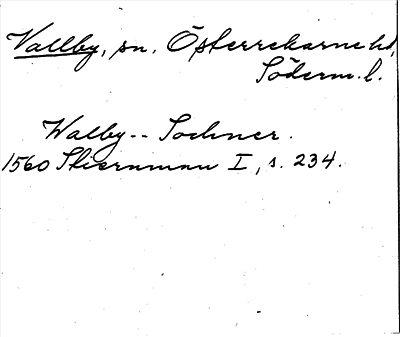 Vallby, sn. Österrekarne hd,
Söderm. l.
Walby -- Sochner.
1560 Stiernman I, s. 234.